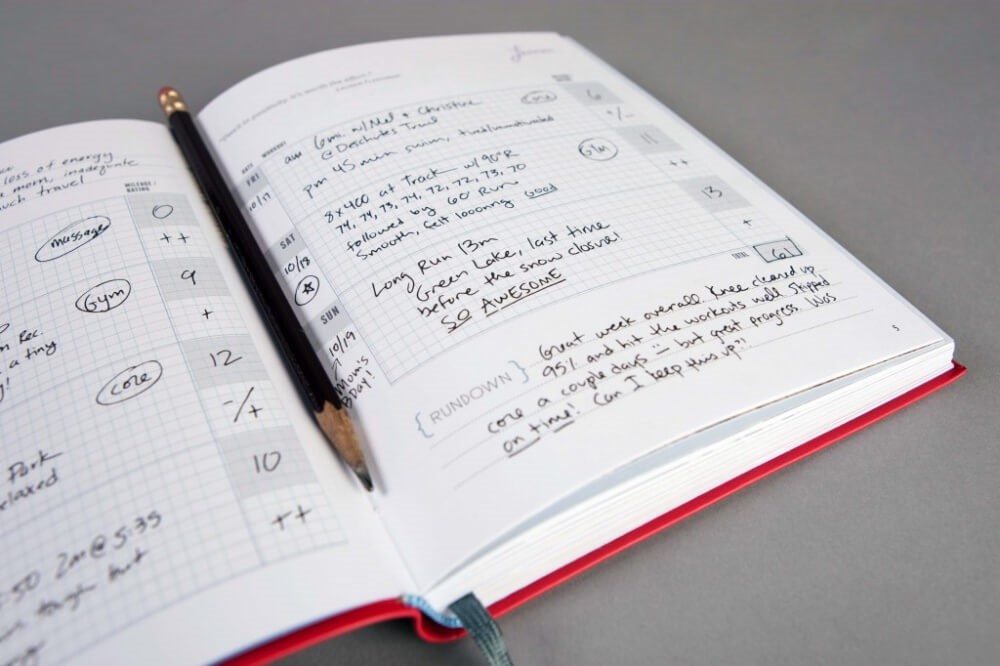 loss of energy
mom, inadequate
much travel
MILEAGE /
RATING
massage
0
++
Gym
9
+
Rec.
a tiny
core
12
-/+
Park
relaxed
10
:50 2m @ 5:35
tough but
++
positivity. It's worth the effort."
DATE
WORKOUT
FRI
10/17
am 6mi. w/Mel + Christine
@ Deschutes Trail
pm 45 min swim, tired/unmotivated
core
6
+/-
SAT
10/18
8x400 at Track w/ 90"R
74, 74, 73, 74, 72, 72, 73, 70
followed by 60' Run
Smooth, felt loooong Good
GYM
11
++
SUN
10/19
Mom's
BDay!
Long Run 13m
Green Lake, last time
before the snow closure!
SO AWESOME
13
+
TOTAL
61
{RUNDOWN}
Great week overall. Knee cleared up
95% and hit the workouts well. Skipped
core a couple days but great progress. Was
on time! Can I keep this up?!
5